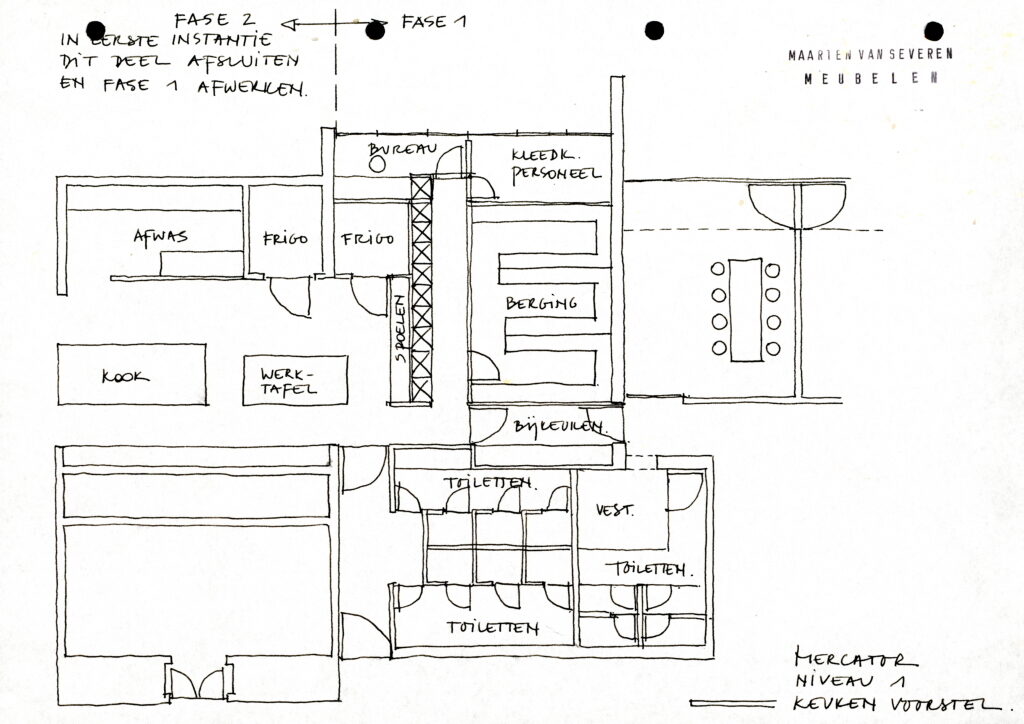 FASE 2
FASE 1
IN EERSTE INSTANTIE
DIT DEEL AFSLUITEN
EN FASE 1 AFWERKEN.
MAARTEN VAN SEVEREN
MEUBELEN
BUREAU
KLEEDK.
PERSONEEL
AFWAS
FRIGO
FRIGO
SPOELEN
BERGING
KOOK
WERK-
TAFEL
BIJKEUKEN.
TOILETTEN.
VEST.
TOILETTEN.
TOILETTEN
MERCATOR
NIVEAU 1
KEUKEN VOORSTEL.